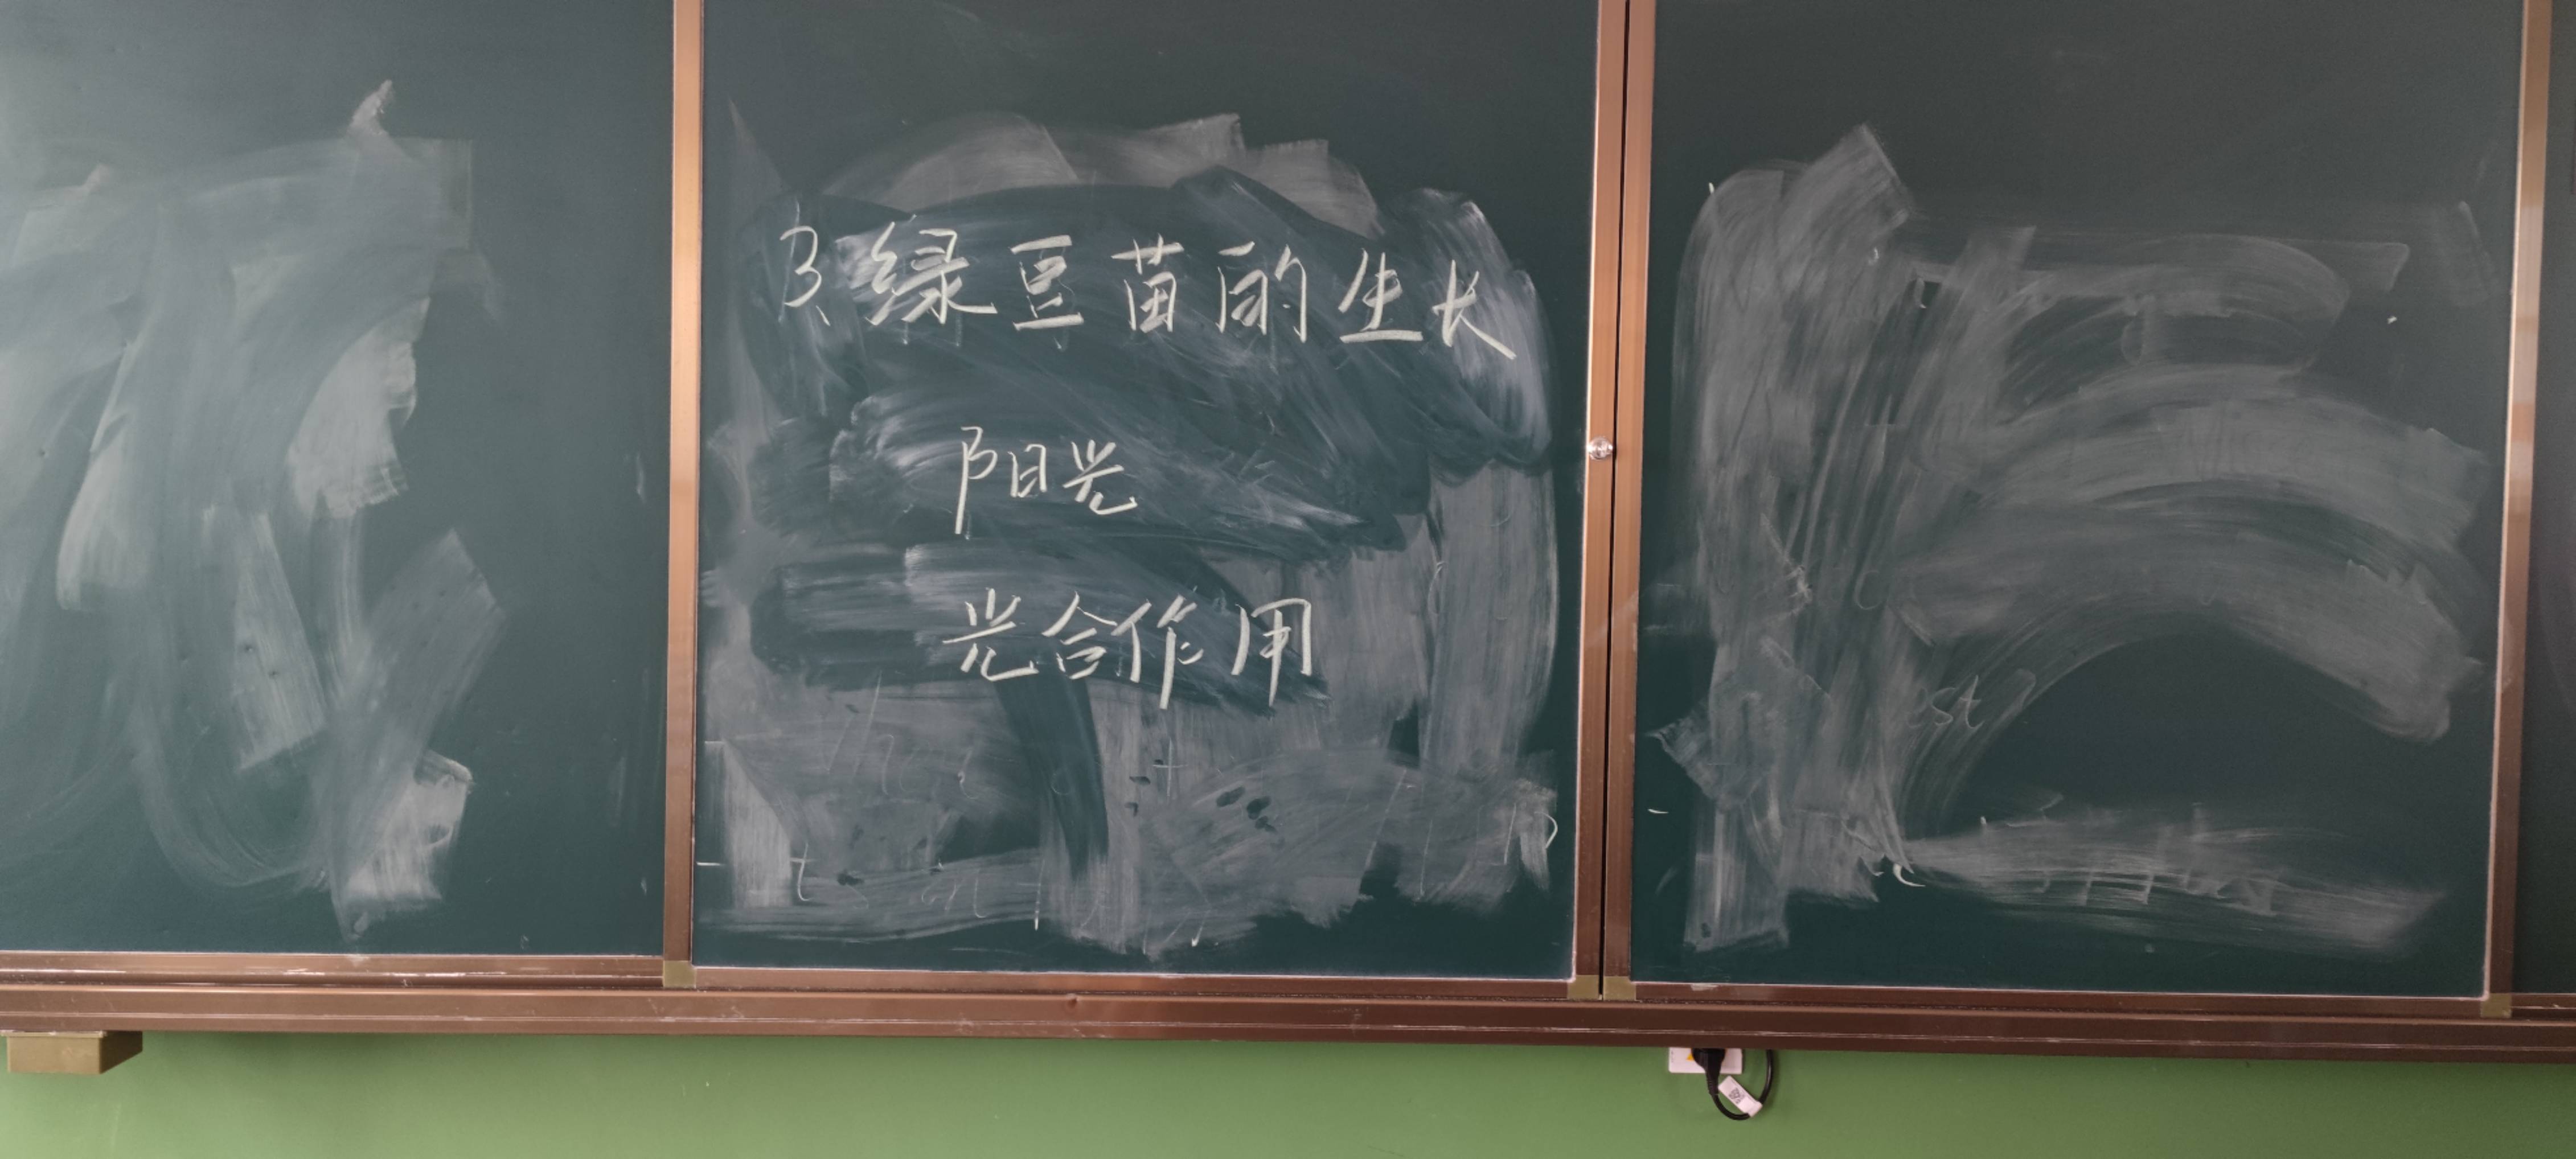 3、绿豆苗的生长
阳光
光合作用
est